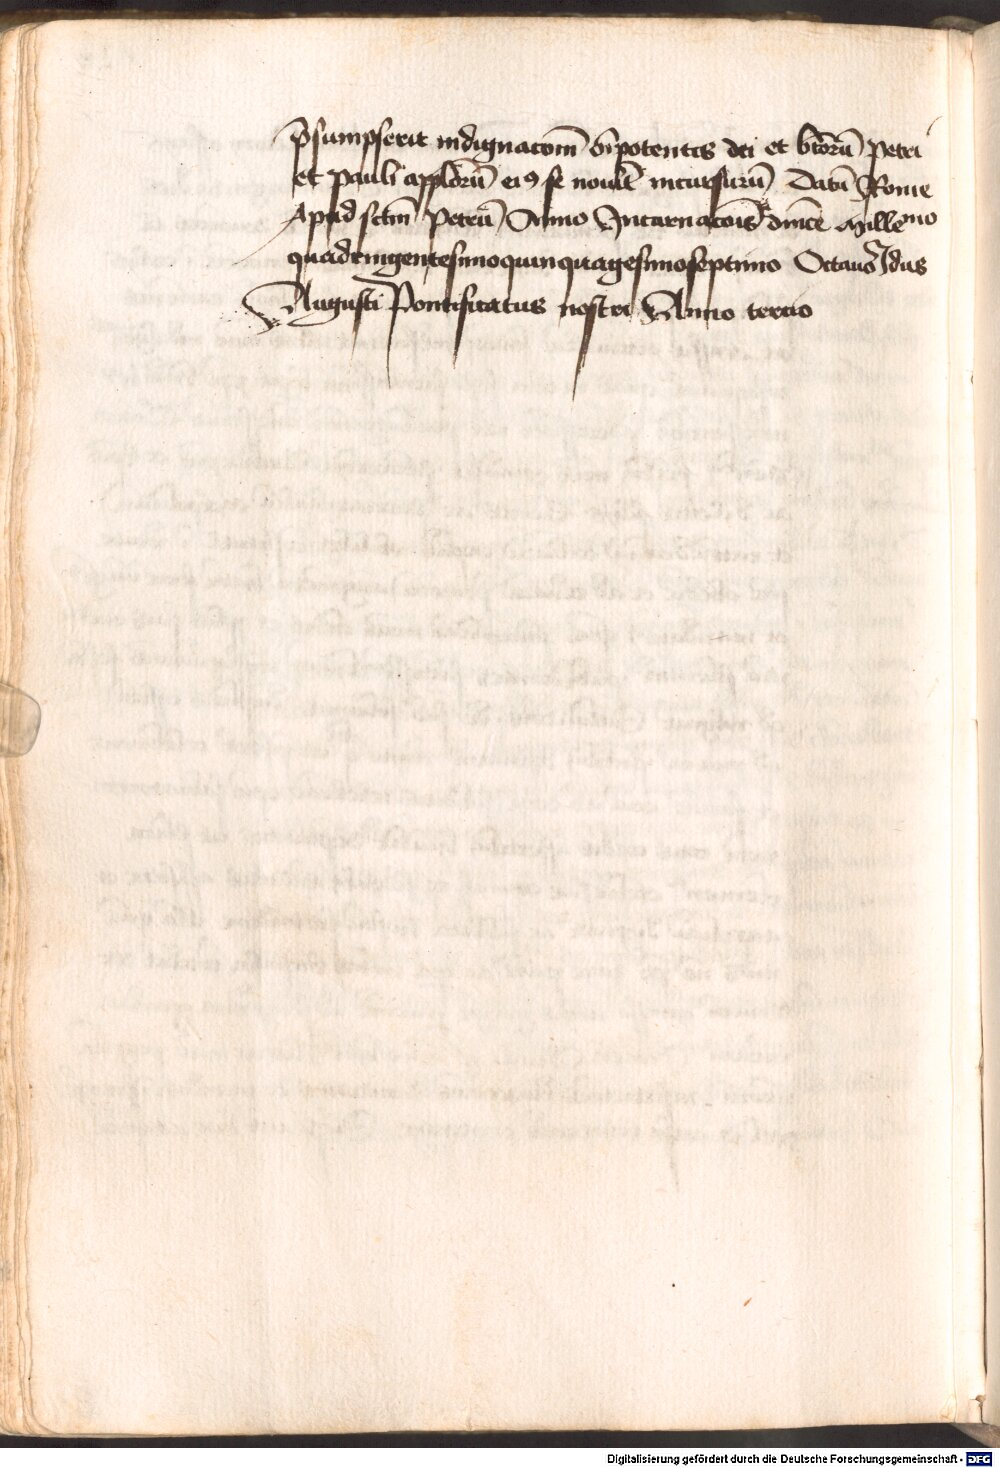 p̄sumpserit indignacōm ōīpotentis dei et btōrū Petri
et Pauli applōrū ei9 se nouīt incursurū Datū Rome
Apud sctm̄ Petrū Anno Incarnacōis dnīce Millemo
quadringentesimoquinquagesimoseptimo Octauo Idus
Augusti Pontificatus nostri Anno tercio
Digitalisierung gefördert durch die Deutsche Forschungsgemeinschaft - DFG